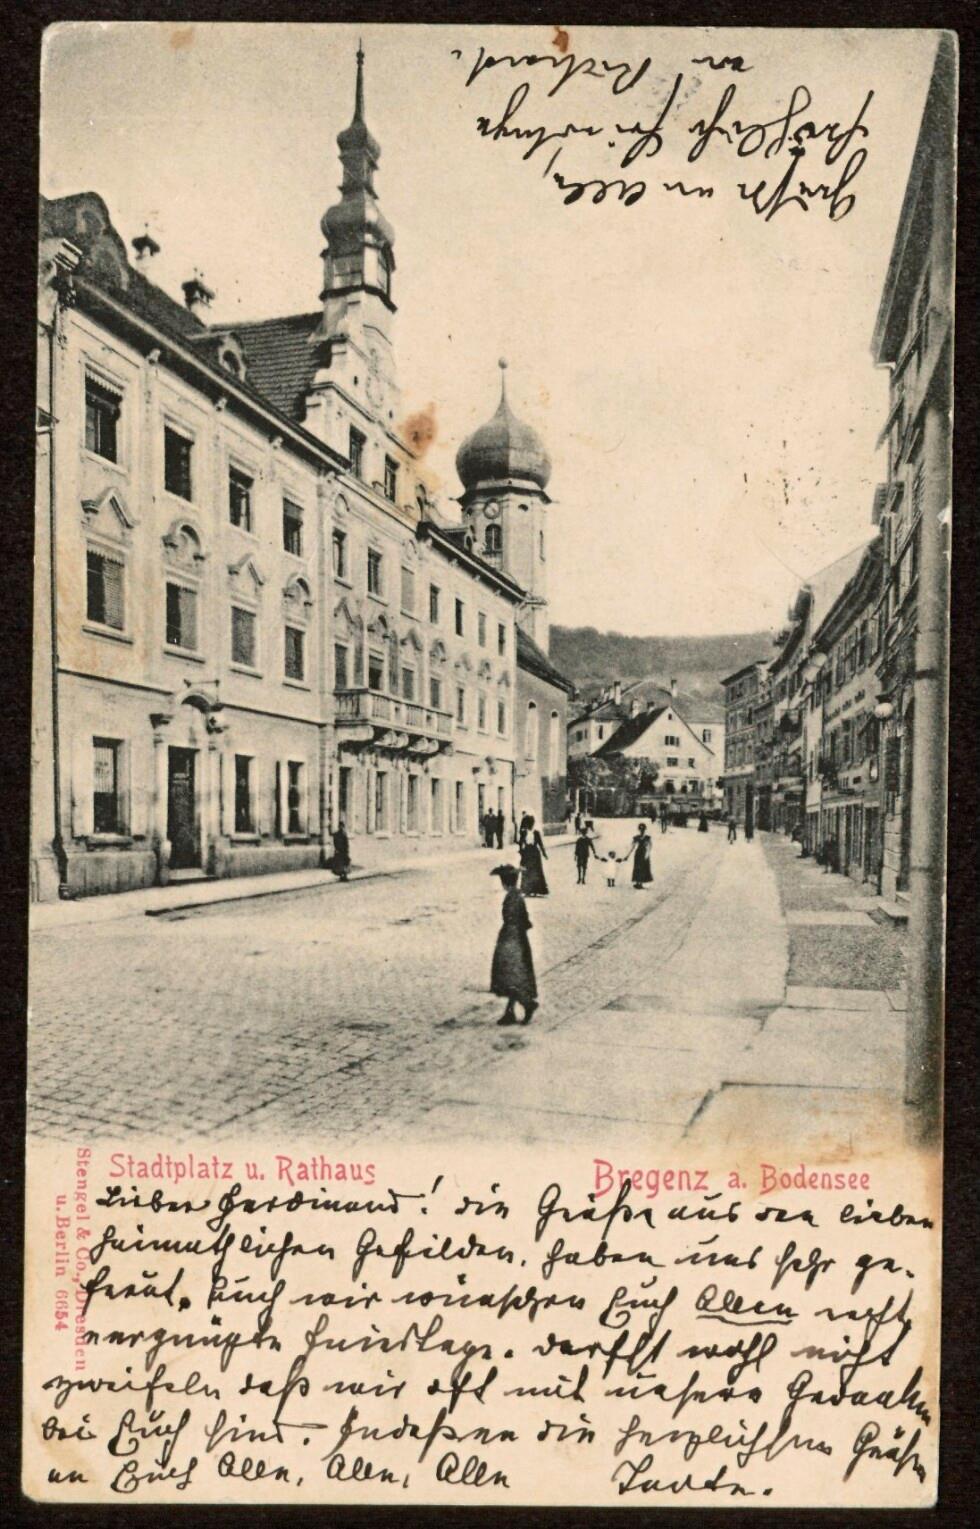 Grüße an Alle,
fröhliche Feiertage
von Richard.
Stadtplatz u. Rathaus
Bregenz a. Bodensee
Stengel & Co., Dresden
u. Berlin 6654
Lieber Ferdinand! die Grüße aus den lieben
heimathlichen Gefilden, haben uns sehr ge-
freut. Auch wir wünschen Euch Allen recht
vergnügte Feiertage. darfst wohl nicht
zweifeln daß wir oft mit unsern Gedanken
bei Euch sind. Indeßen die herzlichsten Grüße
an Euch Alle, Alle, Alle
Tante.